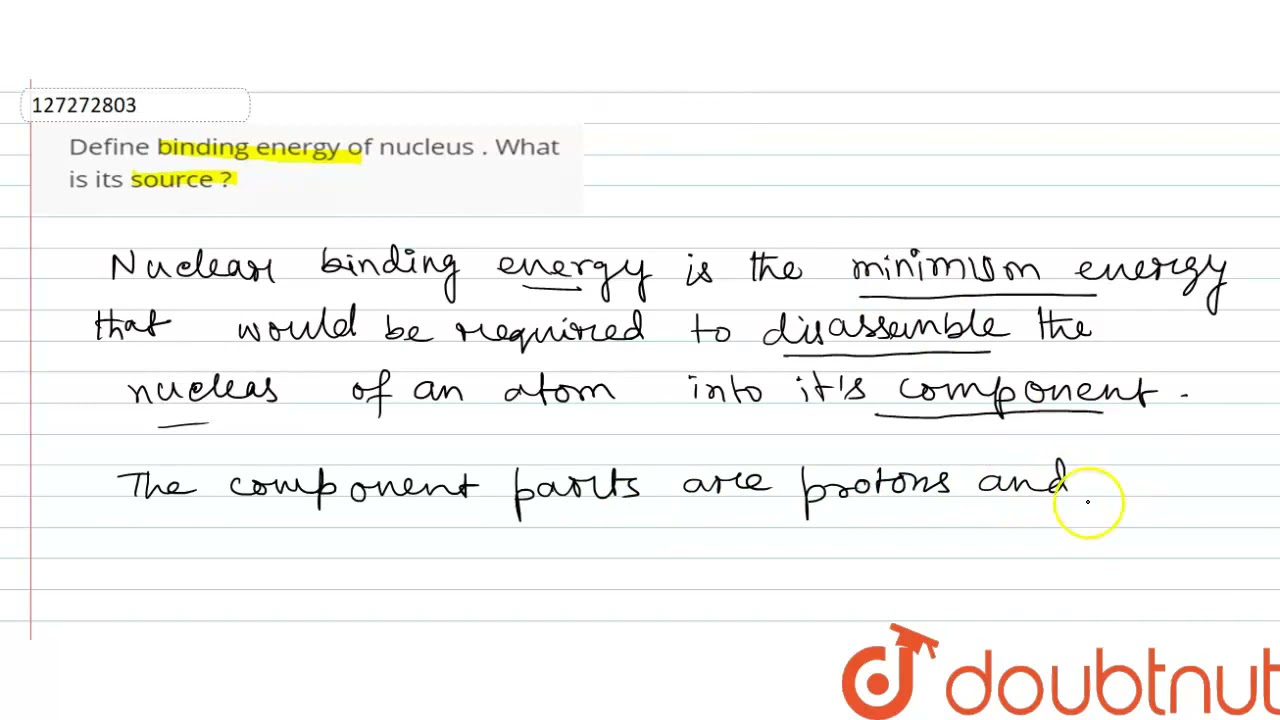 127272803
Define binding energy of nucleus . What
is its source ?
Nuclear binding energy is the minimum energy
that would be required to disassemble the
nucleas of an atom into it's component .
The component parts are protons and
doubtnut